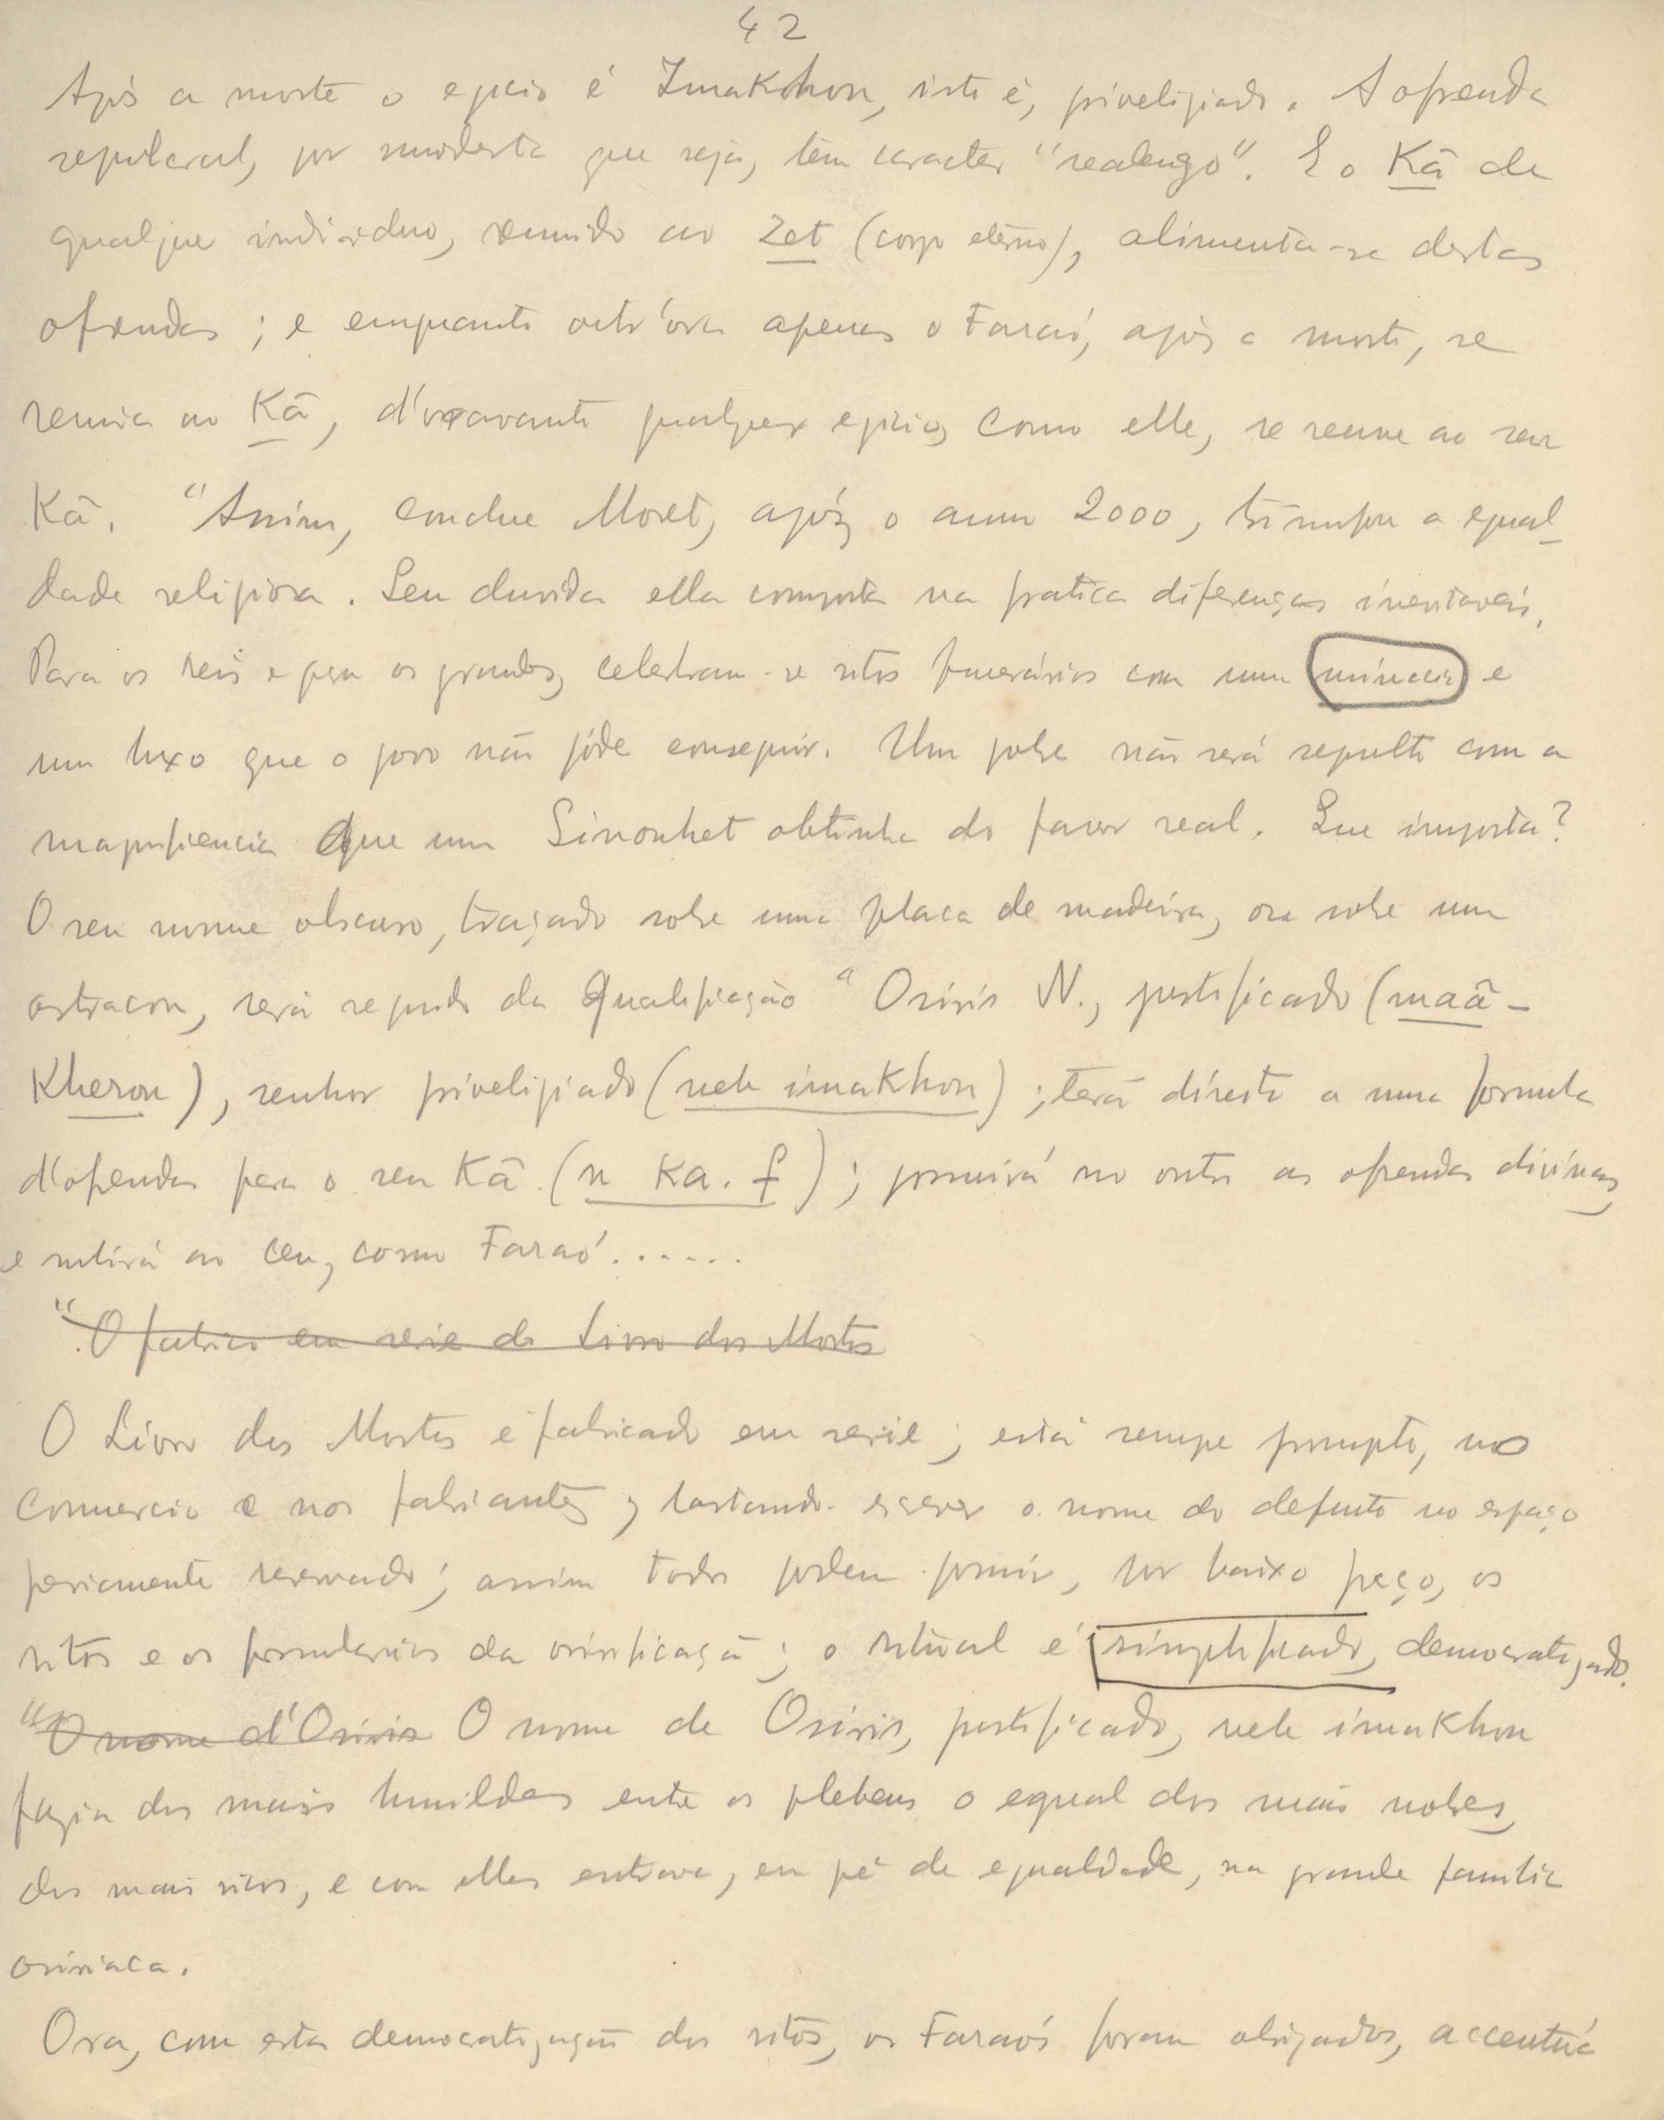 42
Após a morte o epcio é Imakhou, isto é, priveligiado. A ofrenda
sepulcral, por modesta que seja, tem caracter "realengo". E o Kâ de
qualquer individuo, reunido ao Zet (corpo eterno), alimenta-se destas
ofrendas ; e emquanto outr'ora apenas o Faraó, após a morte, se
reunia ao Kâ, d'oravante qualquer epcio, como elle, se reune ao seu
Kâ. "Assim, conclue Moret, após o anno 2000, triunfou a egual-
dade religiosa. Sem duvida ella comporta na pratica diferenças inevitaveis.
Para os reis e para os grandes, celebram-se ritos funerários com uma minucia e
um luxo que o povo não póde conseguir. Um pobre não será sepulto com a
magnificencia que um Sinouhet obtinha do favor real. Que importa?
O seu nome obscuro, traçado sobre uma placa de madeira, ora sobre um
ostracon, será seguido da qualificação "Osiris N., justificado (maâ-
Kherou), senhor priveligiado (neb imakhou) ; terá direito a uma formula
d'ofrendas para o seu Kâ (n Ka. f) ; possuirá no outro as ofrendas divinas,
e subirá ao ceu, como Faraó ......
"O fabrico em serie do Livro dos Mortos
O Livro dos Mortos é fabricado em serie ; está sempre prompto, no
commercio e nos fabricantes, bastando escrever o nome do defunto no espaço
previamente reservado ; assim todos podem possuir, por baixo preço, os
ritos e os formularios da osirificação ; o ritual é simplificado, democratizado.
"O nome d'Osiris O nome de Osiris, justificado, neb imakhou
fazia dos mais humildes entre os plebeus o egual dos mais nobres,
dos mais ricos, e com elles entrava, em pé de egualdade, na grande familia
osiriaca.
Ora, com esta democratização dos ritos, os Faraós foram obrigados, accentúa